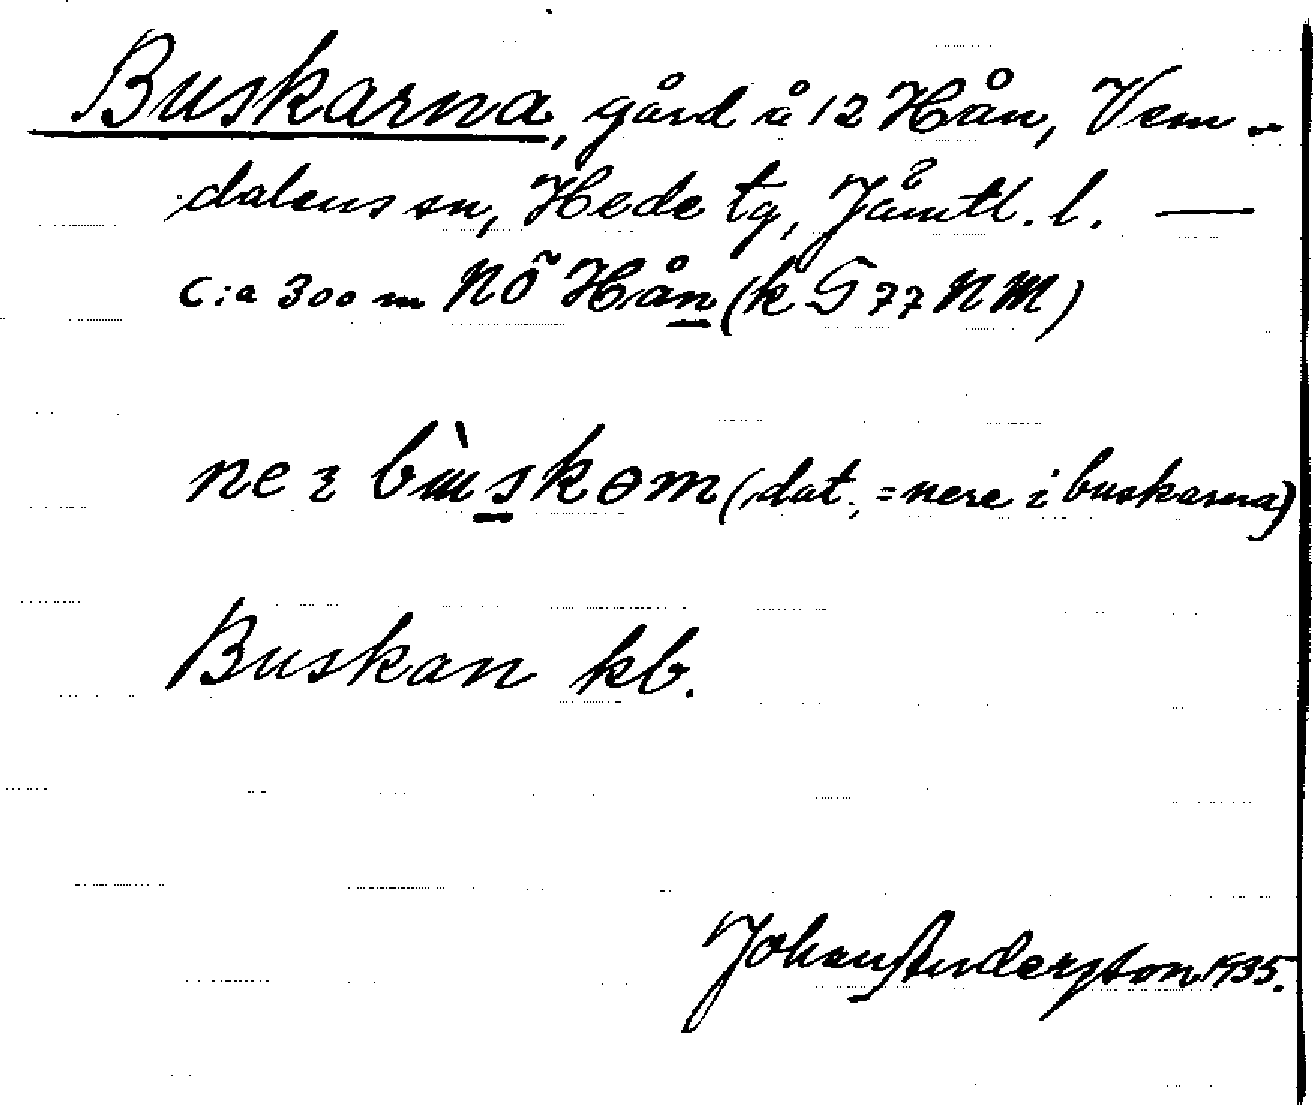 Buskarna, gård å 12 Hån, Vem-
dalens sn, Hede tg, Jämtl. l. —
c:a 300 m NÖ Hån (k G 77 NM)
(dat., = nere i buskarna)
Buskan kb.
Johan Andersson 1935.